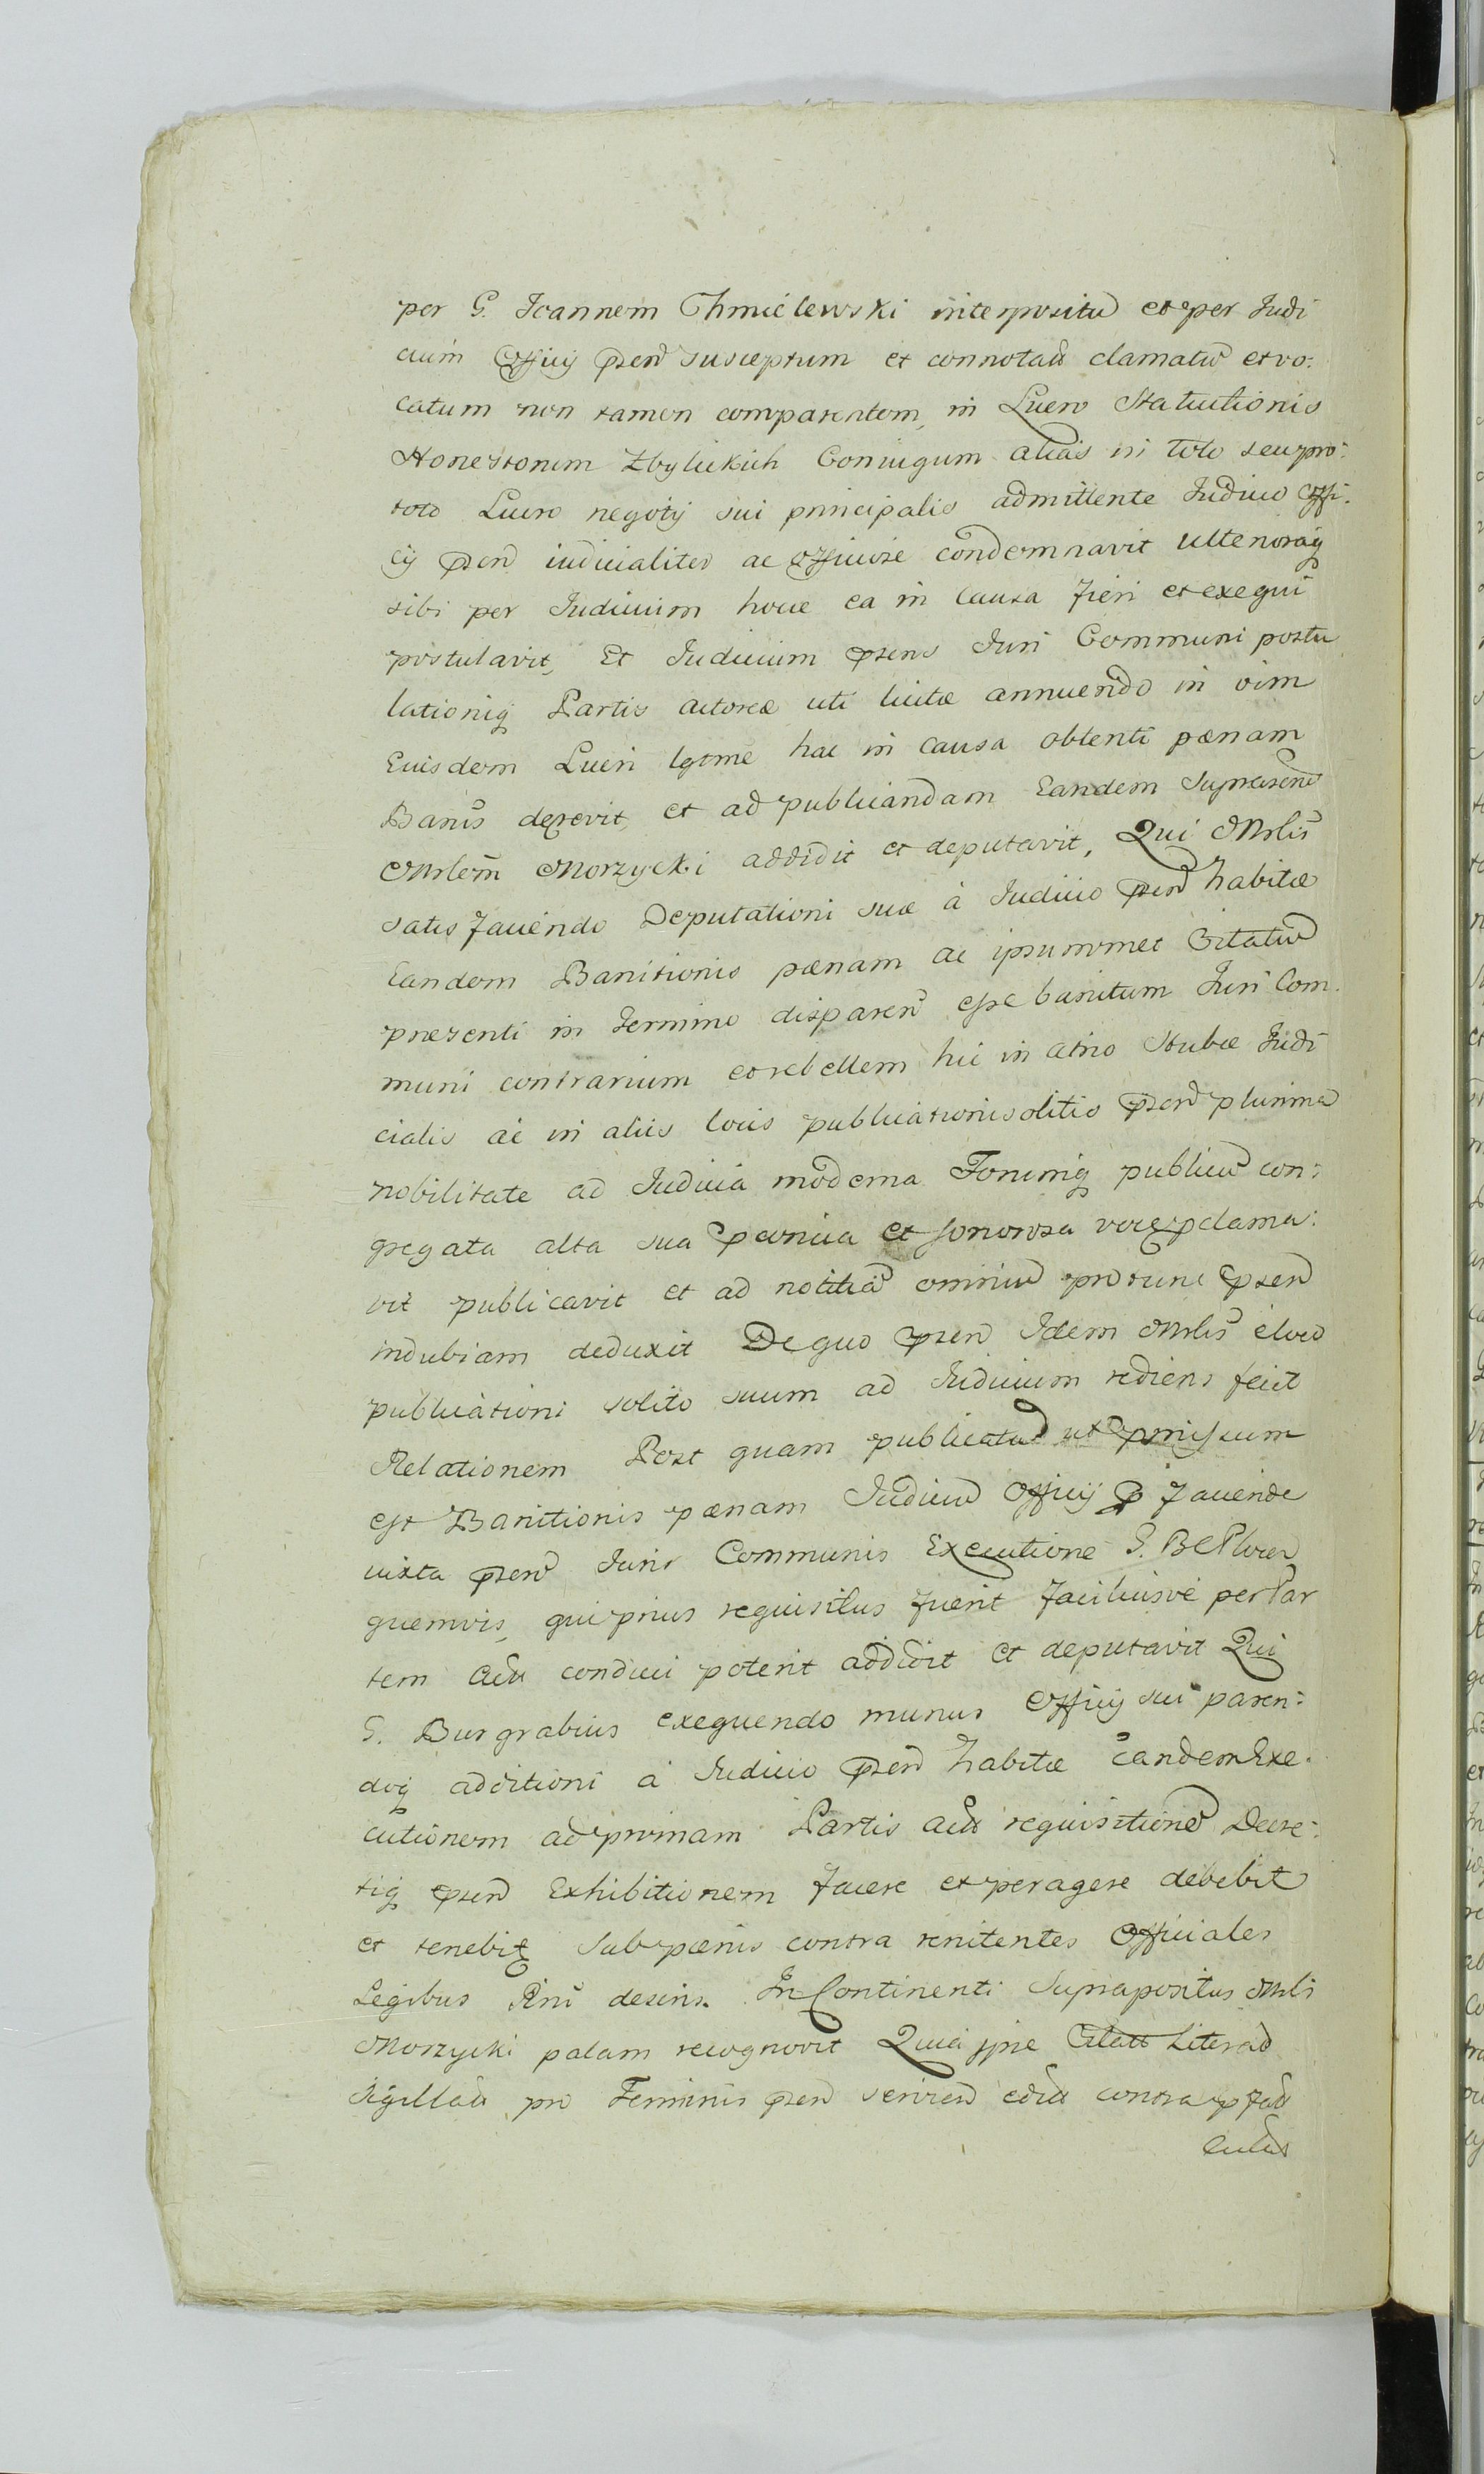 per G. Joannem Chmielewski interpositu et per Judi
cium Officij psen susceptum et connotatu clamatu et vo:
catum non tamen comparentem, in Lucro Statutionis
Honestorum Zbylickich Coniugum alias in toto seu pro:
toto Lucro negotij sui principalis admittente Judicio Offi:
cij psen iudicialiter ac officiose condemnavit ulterioraq
sibi per Judicium hocce ea in causa fieri et exequi
postulavit, Et Judicium psens Juri Communi postu
lationiq Partis actoreæ uti licitæ annuendo in vim
Eiusdem Lucri lgtme hac in causa obtenti pænam
Banis decrevit, et ad publicandam Eandem Suprasend
Mrlem Morzycki addidit et deputavit, Qui Mrlis
satisfaciendo Deputationi suæ à Judicio psen habitæ
Eandem Banitionis pænam ac ipsummet Citatu
præsenti in Termino disparen esse banitum Juri Com:
muni contrarium et rebellem hic in atrio Stubæ Judi
cialis ac in aliis locis publicationi solitis psen plurima
nobilitate ad Judicia moderna Forumq publicu con:
gregata alta sua pervia et sonorosa voce pclama:
vit publicavit et ad notitia omniu protunc psen
indubiam deduxit De quo psen Idem Mrlis è loco
publicationi solito suum ad Judicium rediens fecit
Relationem Post quam publicatu ut pmissum
est Banitionis pænam Judiciu Officij p facienda
iuxta psen Juris Communis Executione G. B C Ploceñ
quemvis, qui prius requisitus fuerit faciliusve per Par
tem actu conduci poterit addidit et deputavit Qui
G. Burgrabius exequendo munus Officij sui paren:
doq additioni à Judicio psen habitæ eandem Exe:
cutionem ad primam Partis actr requisitione Decre:
tiq psen Exhibitionem facere et peragere debebit
et tenebitr Sub pænis contra renitentes Officiales
Legibus Rni descris. In Continenti Suprapositus Mrlis
Morzycki palam recognovit Quia ipse Citatt Literas
Sigillatu pro Terminis psen servien edita contra pfatu